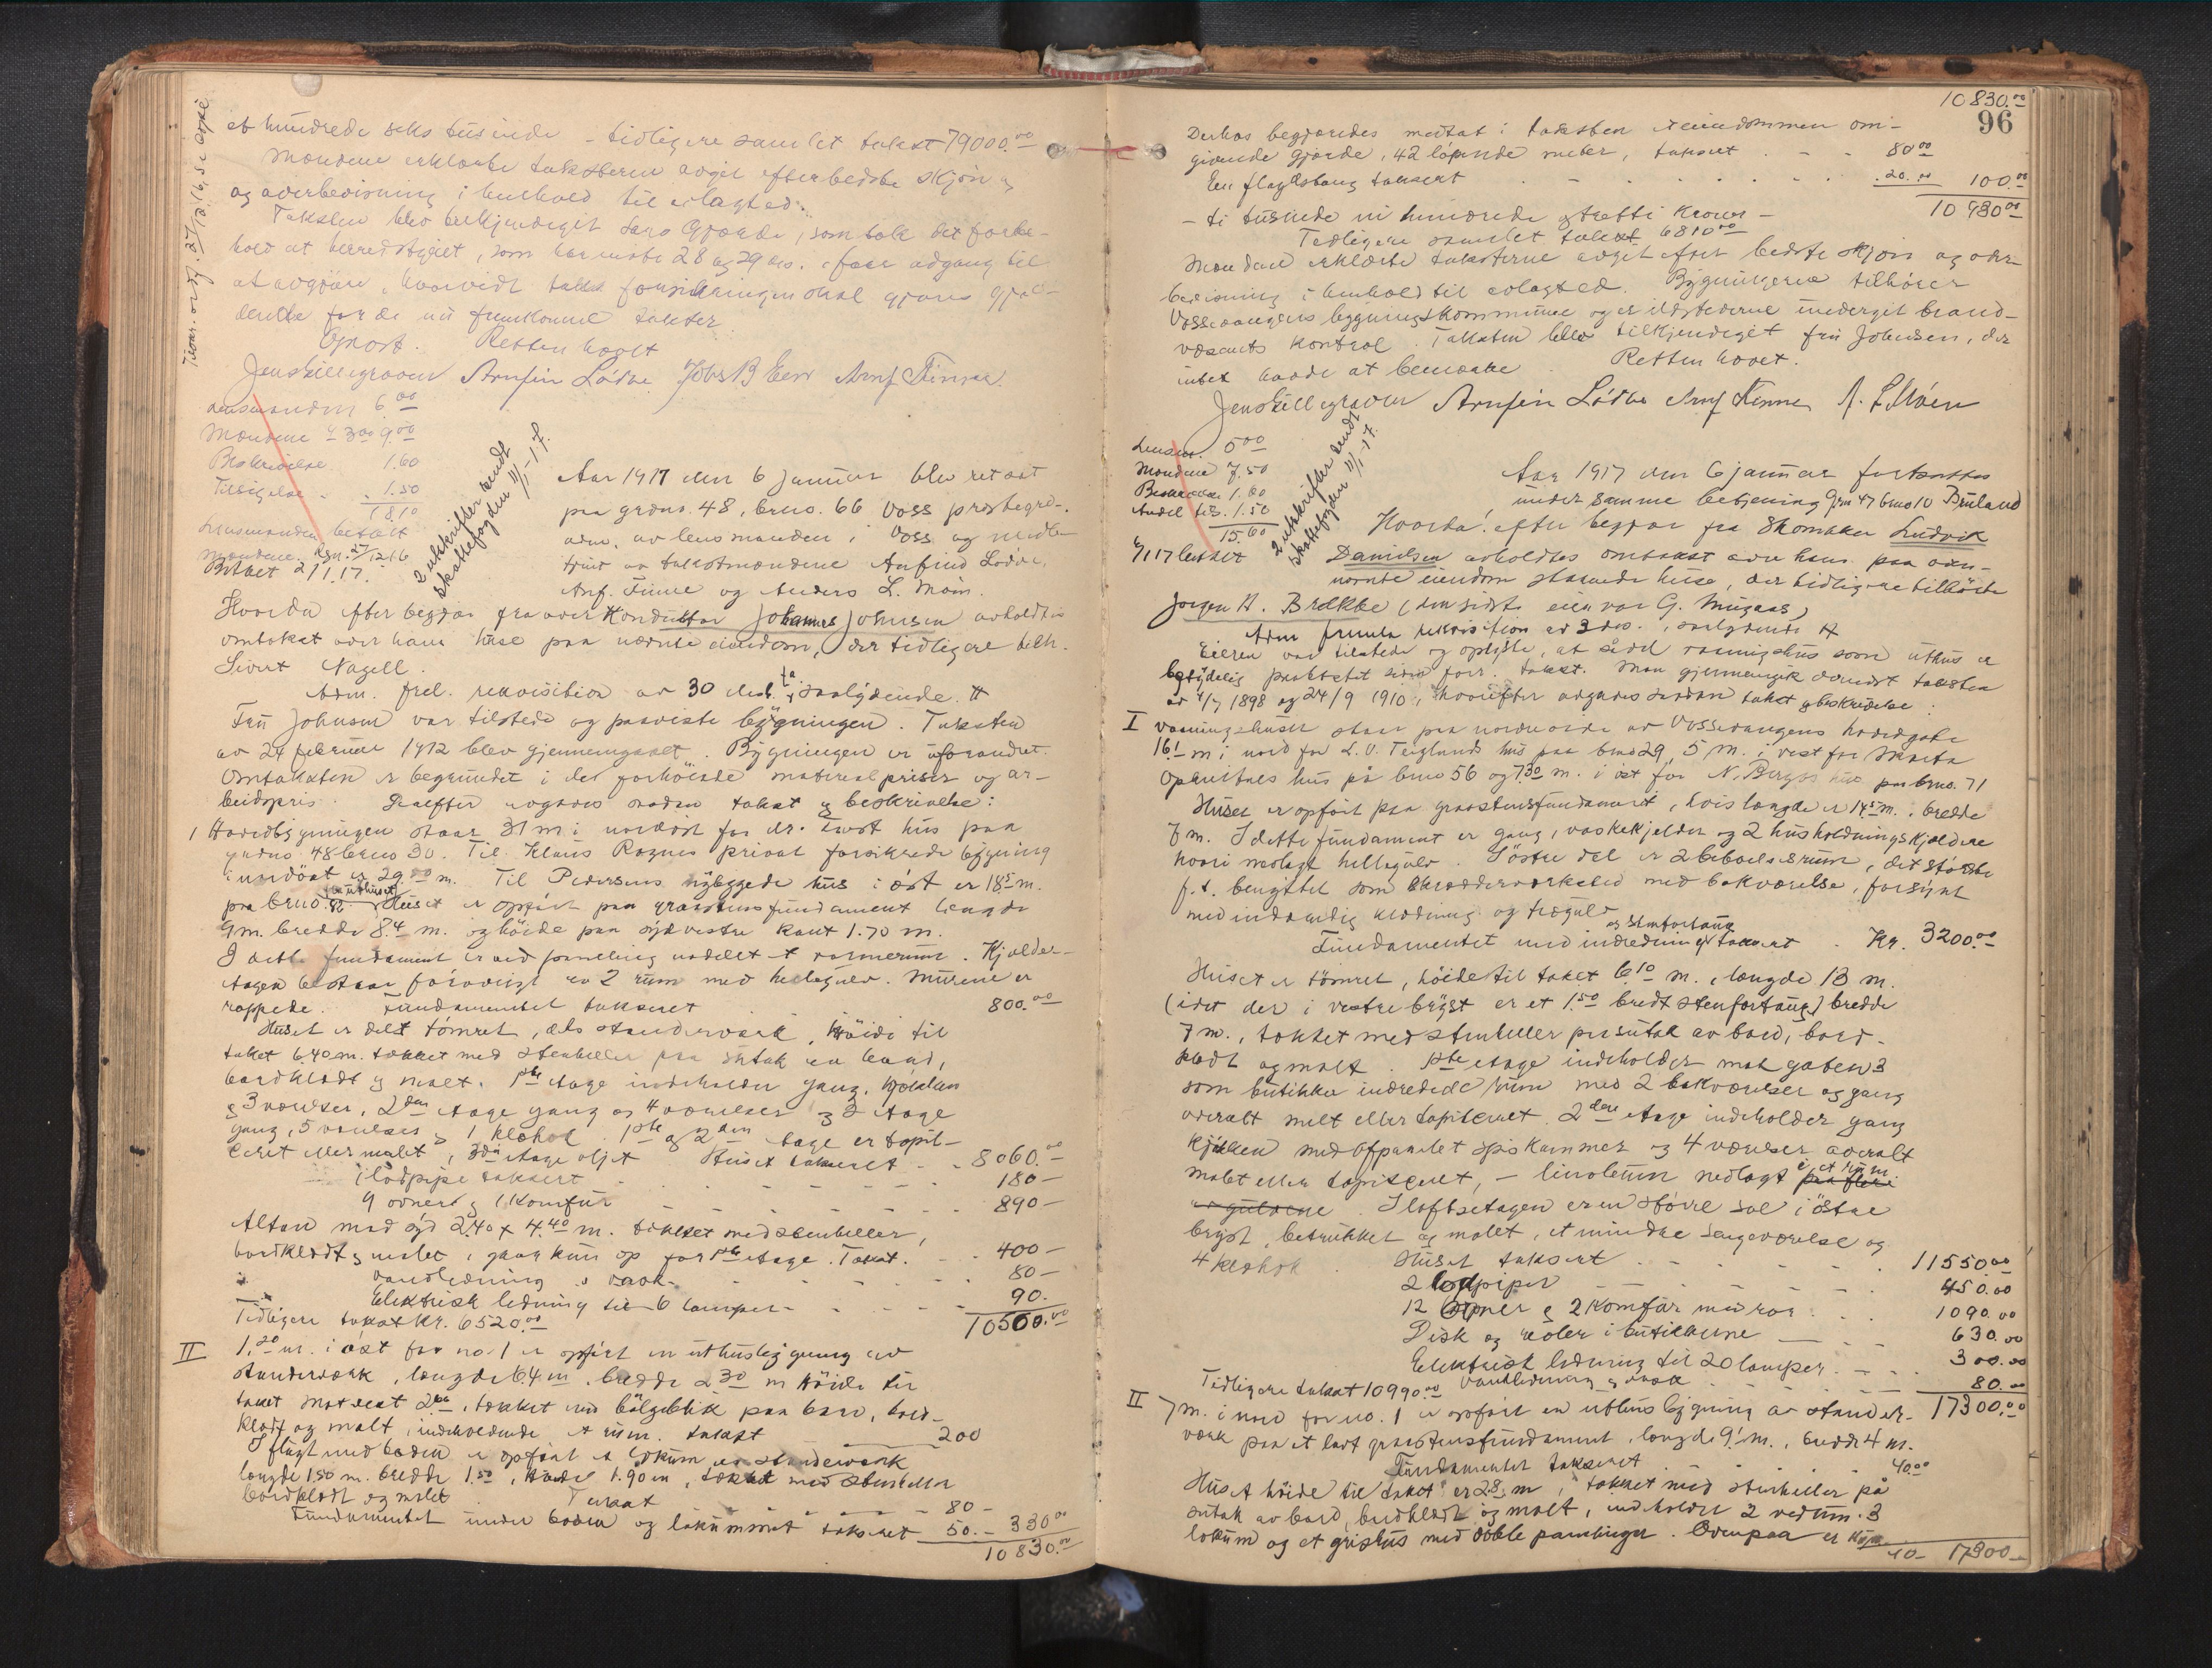 et hundrede seks tusinde – tidligere samlet takst 79000.00
Mændene erklærte taksterne avgit efter bedste skjøn og
og overbevisning i henhold til avlagt ed.
Taksten blev bekjendtgit Lars Gjerde, som tok det forbe-
hold at herredstyret, som har møte 28 og 29 ds. faar adgang til
at avgjøre, hvorvidt forsikringen skal gjøres gjæl-
dende for de nu fremkomne takster.
Oplæst. Retten hævet
Jens Gillegraven Arnfin Lødve Arnf Finne
Lensmanden 6.00
Mændene 3.00 9.00
Beskrivelse 1.60
Tilsigelse 1.50
18.10
Lensmanden betalt
Mændene Rgn. 27/12 16
Betalt 2/1 17.
2 utskrifter sendt
skattefogden 11/1-17.
Aar 1917 den 6 januar blev ret sat
paa grdno. 48, brno. 66 Voss prestegrd.
adm. av lensmanden i Voss og medbe-
tjent av takstmændene Arnfind Lødve,
Arnf. Finne og Anders L. Møen.
Hvorda efter begjær fra overkonduktør Johannes Johnsen avholdtes
omtakst over hans huse paa nævnte eiendom, der tidligere tilh.
Sivert Nagell.
Adm. frel. rekvisition av 30 desb. f.a., saalydende #
Fru Johnsen var tilstede og paaviste bygningen. Taksten
av 24 februar 1912 blev gjennemgaaet. Bygningen er uforandret.
Omtaksten er begrundet i det forhøiede materialpriser og ar-
beidspris. Derefter avgaves saadan takst og beskrivelse:
1 Hovedbygningen staar 31 m i nordøst for dr. hus paa
grdno. 48 brno 30. Til Klaus Rognes privat forsikrede bygning
i nordøst er 29.00 m. Til Pedersens nybyggede hus i øst er 18.5 m.
paa brno. 82. Huset er opført paa graastensfundament længde
9 m. bredde 8.4 m. og høide paa sydvestre kant 1.70 m.
I dette fundament er ved panelling avdelt et værmerum. Kjelder-
etagen bestaar forøvrigt av 2 rum med hellegulv. Murene er
rappede. Fundamentet taksert 800.00
Huset er delt tømret, dels standerverk, høide til
taket 6.40 m. tækket med stenheller paa sutak av bord,
bordklædt og malt. 1ste etage indeholder gang, kjøkken
og 3 værelser, 2den etage gang og 4 værelser og 3 etage
gang, 5 værelser og 1 klæhol. 1ste og 2den etage er tapit-
ceret eller malet, 3die etage oljet. Huset taksert 8060.00
1 lodpipe taksert 180 –
9 ovner og 1 komfur 890 –
Altan mod syd 2.40 x 4.40 m. tækket med stenheller,
bordklædt og malet, gaar kun op for 1ste etage. Takst. 400 –
vandledning og vask 80 –
Elektrisk ledning til 6 lamper 90.
Tidligere takst kr. 6520.00 10500.00
II 1.20 m. i øst for no. 1 er opført en uthusbygning av
standerverk, længde 6.4 m. bredde 2.30 m høide til
taket mot vest 2 , tækket med bølgeblik paa bord, bord-
klædt og malt, indeholdende et rum. takst 200
I flugt med boden er opført et lokum av standerverk
længde 1.50 m. bredde 1.50, høide 1.90 m, tækket med stenheller
bordklædt og malet. Takst 80 –
Fundamentet under boden og lokummet taksert 50.– 330.00
10830.00
10830.00
96
Derhos begjæredes medtat i taksten eiendommen om-
givende gjærde, 42 løpende meter, taksert 80.00
En flagstang taksert 20.00 100.00
10930.00
– ti tusinde ni hundrede og tretti kroner –
Tidligere samlet takst 6810.00
Mændene erklærte taksterne avgit efter bedste skjøn og over-
bevisning i henhold til avlagt ed. Bygningerne tilhører
Vossevangens bygningskommune og er ildstederne undergit brand-
væsenets kontrol. Taksten blev tilkjendegit fru Johnsen, der
intet havde at bemærke. Retten hævet.
Jens Gillegraven Arnfin Lødve Arnf Finne A. L. Møen
Lensm. 5.00
Mændene 7.50
Beskrivelse 1.60
Andel tils. 1.50
15.60
/1 17 betalt
2 utskrifter sendt
skattefogden 11/1-17.
Aar 1917 den 6 januar fortsattes
under samme betjening grn 47 brno 10 Bruland
Hvorda! efter begjær fra skomaker Ludvik
Danielsen avholdtes omtakst over hans paa oven-
nævnte eiendom staaende huse, der tidligere tilhørte
Jørgen H. Brekke (den sidste eier var G. Mugaas)
Adm fremla rekvisition av 3 ds., saalydende #
Eieren var tilstede og oplyste, at saavel vaaningshus som uthus er
betydelig paakostet siden forr. takst. Man gjennemgik dernæst taksten
av 4/7 1898 og 24/9 1910, hvorefter avgaves saadan takst og beskrivelse:
I Vaaningshuset staar paa nordre side av Vossevangens hovedgate
16.1 m i nord for L. O. Teiglands hus paa brno 29, 5 m. i vest for Marta
Opheitdals hus på brno 56 og 7.30 m. i øst for N. Bergos hus paa brno. 71
Huset er opført paa graastensfundament, hvis længde er 14.5 m., bredde
7 m. I dette fundament er gang, vaskekjelder og 2 husholdningskjeldere
hvori nedlagt hellegulv. I østre del er 2 beboelsesrum, det største
f.t. benyttet som skrædderverksted med bakværelse, forsynt
med indvendig klædning og trægulv
og stenfortaug
Fundamentet med indredning taksert Kr. 3200.00
Huset er tømret, høide til taket 6.10 m., længde 13 m.
(idet der i vestre bryst er et 1.50 bredt stenfortaug) bredde
7 m., tækket med stenheller paa sutak av bord, bord-
klædt og malt. 1ste etage indeholder mot gaten 3
som butikker indredede rum med 2 bakværelser og gang
overalt malt eller tapitseret. 2den etage indeholder gang
kjøkken med avpanelet spiskammer og 4 værelser overalt
malet eller tapitseret, – linoleum nedlagt i et rum
av gulvene. I loftsetagen er en større sal i østre
bryst, betrukket og malet, et mindre sengeværelse og
4 klæhol. Huset taksert 11550.00
2 lodpiper 450.00
12 ovner og 2 komfur med rør 1090.00
Disk og reoler i butikkerne 630.00
Elektrisk ledning til 20 lamper 300.00
Tidligere takst 10990.00 Vandledning og vask 80.00
17300.00
II 7 m. i nord for no. 1 er opført en uthusbygning av stander-
verk paa et lavt graastensfundament, længde 9.1 m., bredde 4 m.
Fundamentet taksert 40.00
Huset høide til taket er 2.8 m, tækket med stenheller på
sutak av bord, bordklædt og malt, indeholder 2 vedrum. 3
lokum og et grisehus med doble panelinger. Ovenpaa er
40 – 17300 –